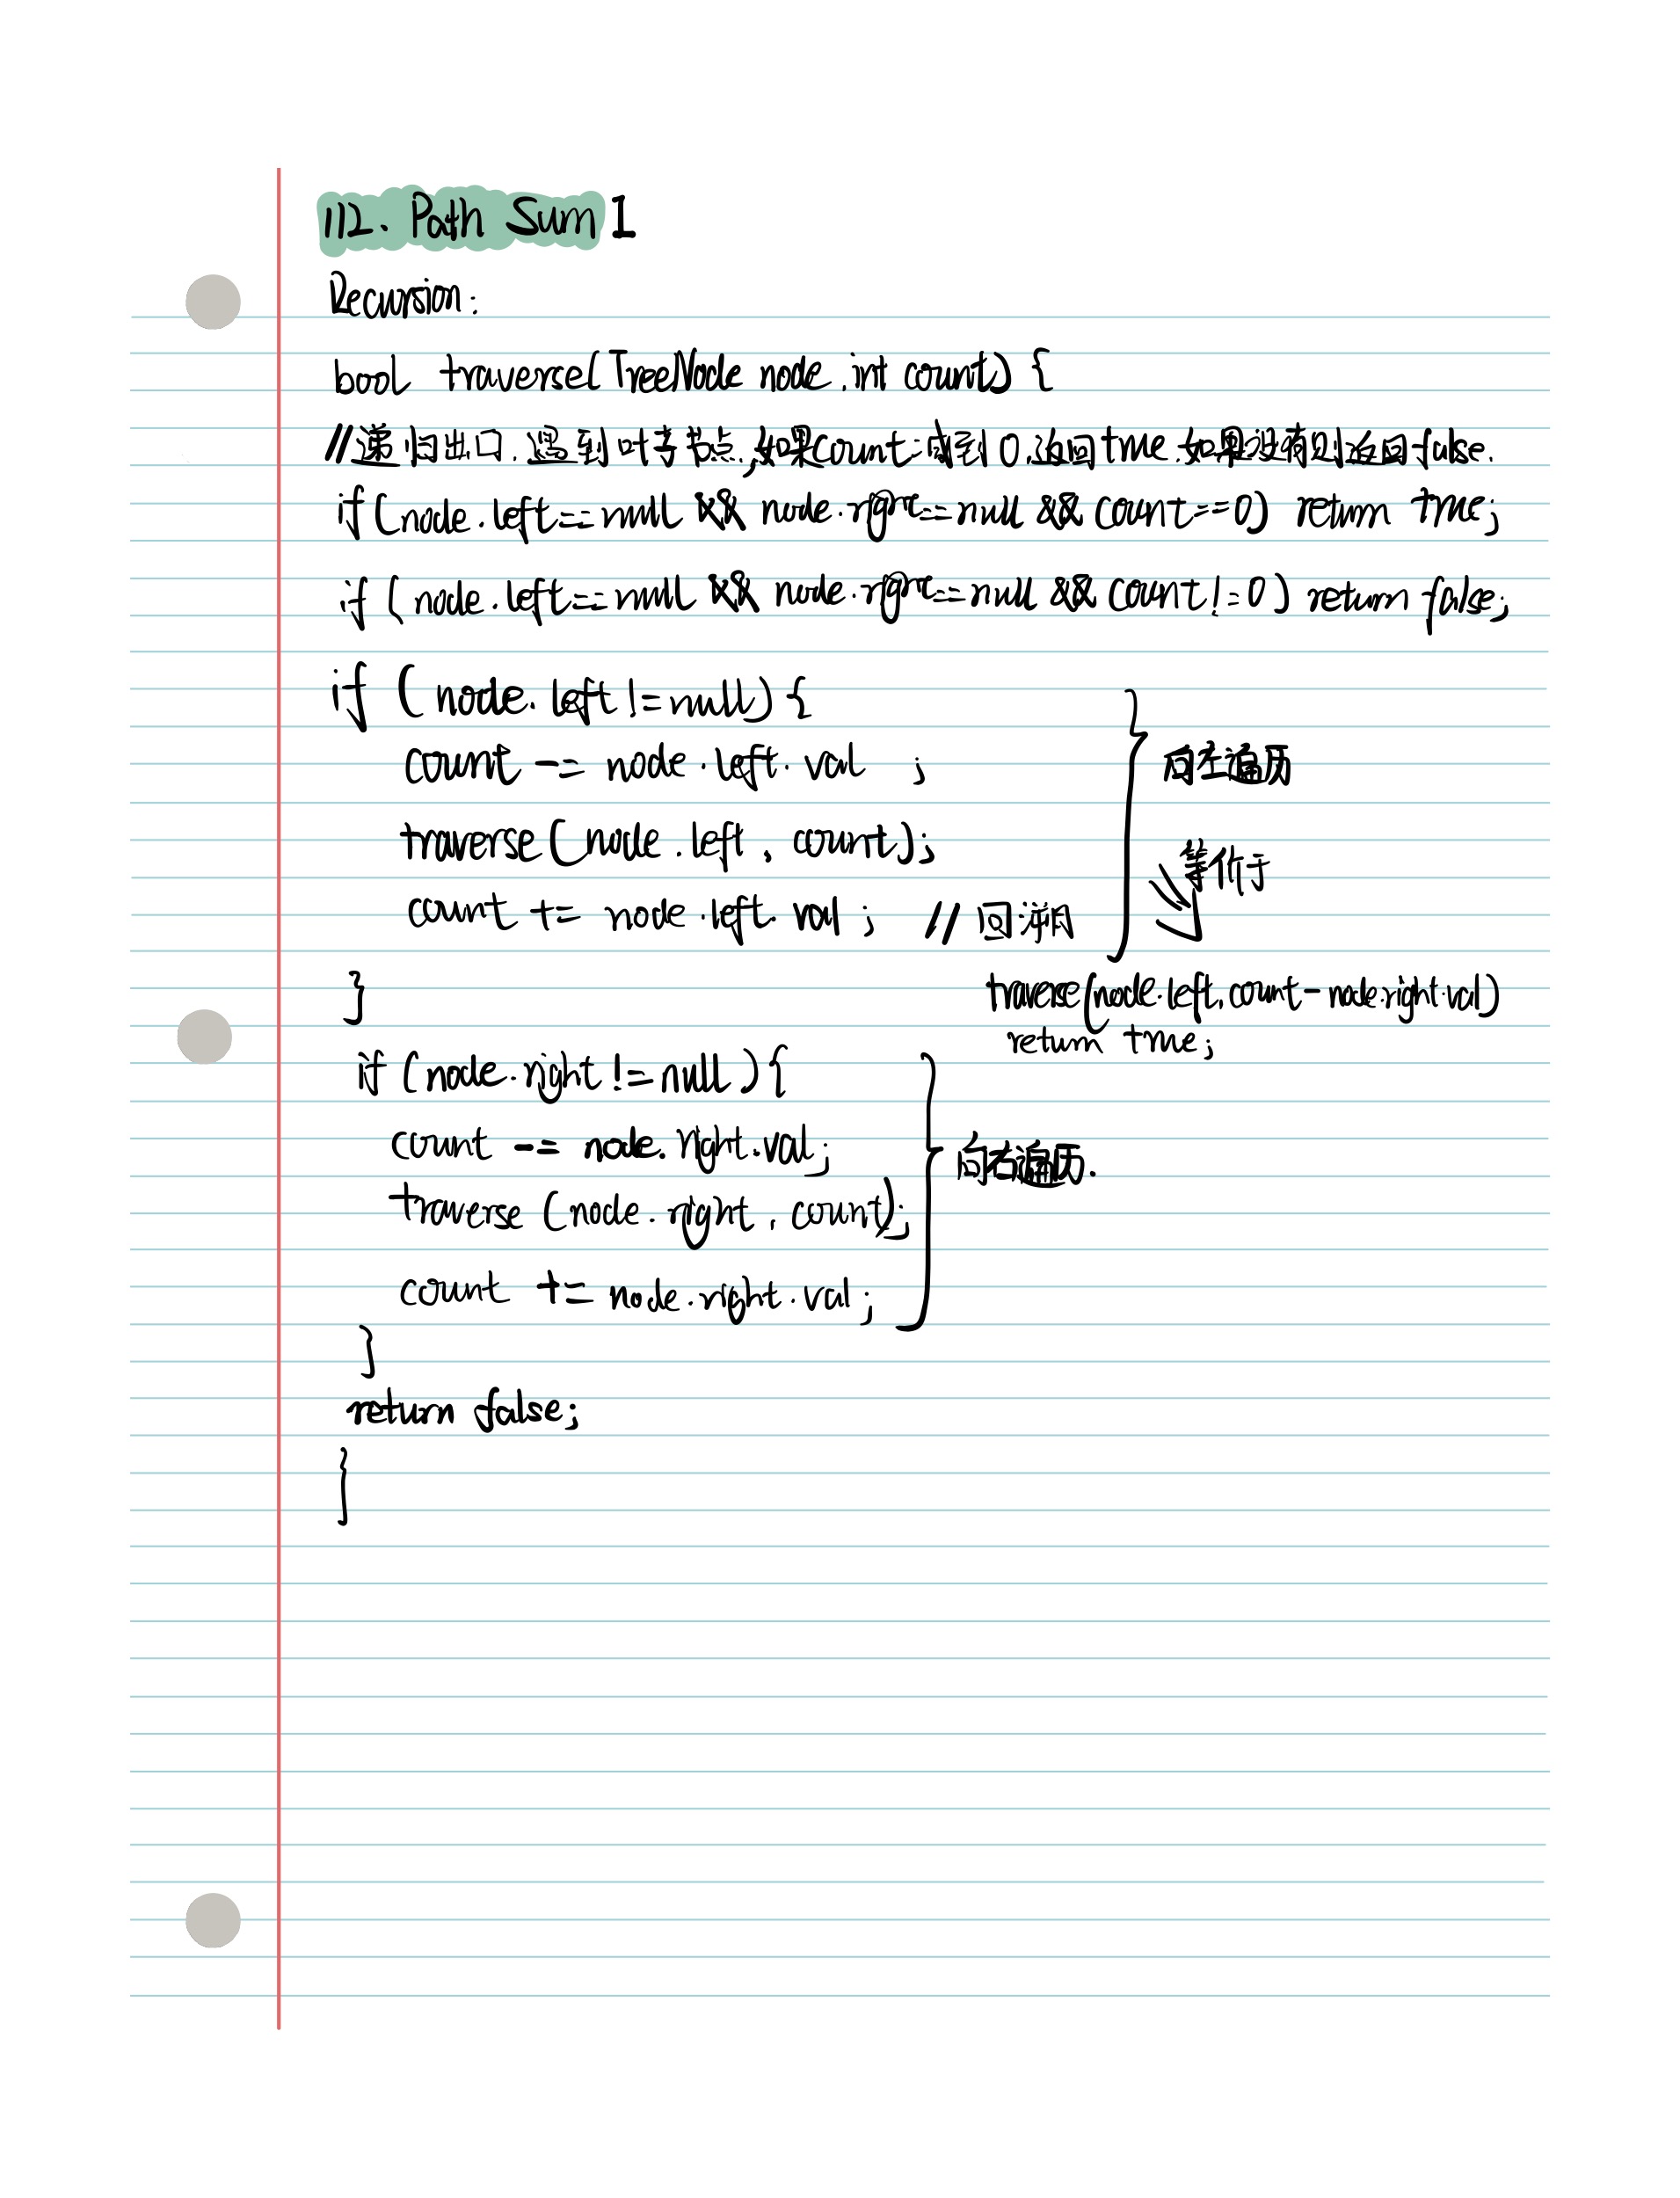 112. Path Sum 1
Recursion:
bool traverse(TreeNode node, int count) {
//递归出口.遇到叶子节点,如果count减到0,返回true.如果没有则返回false.
if (node.left==null && node.right==null && count==0) return true;
if (node.left==null && node.right==null && count!=0) return false;
if (node.left!=null) {
count -= node.left.val ;
向左遍历
traverse(node.left, count);
等价于
count += node.left.val; // 回溯
}
traverse(node.left, count-node.right.val)
return true;
if (node.right!=null) {
count -= node.right.val;
向右遍历.
traverse (node.right, count);
count += node.right.val;
}
return false;
}